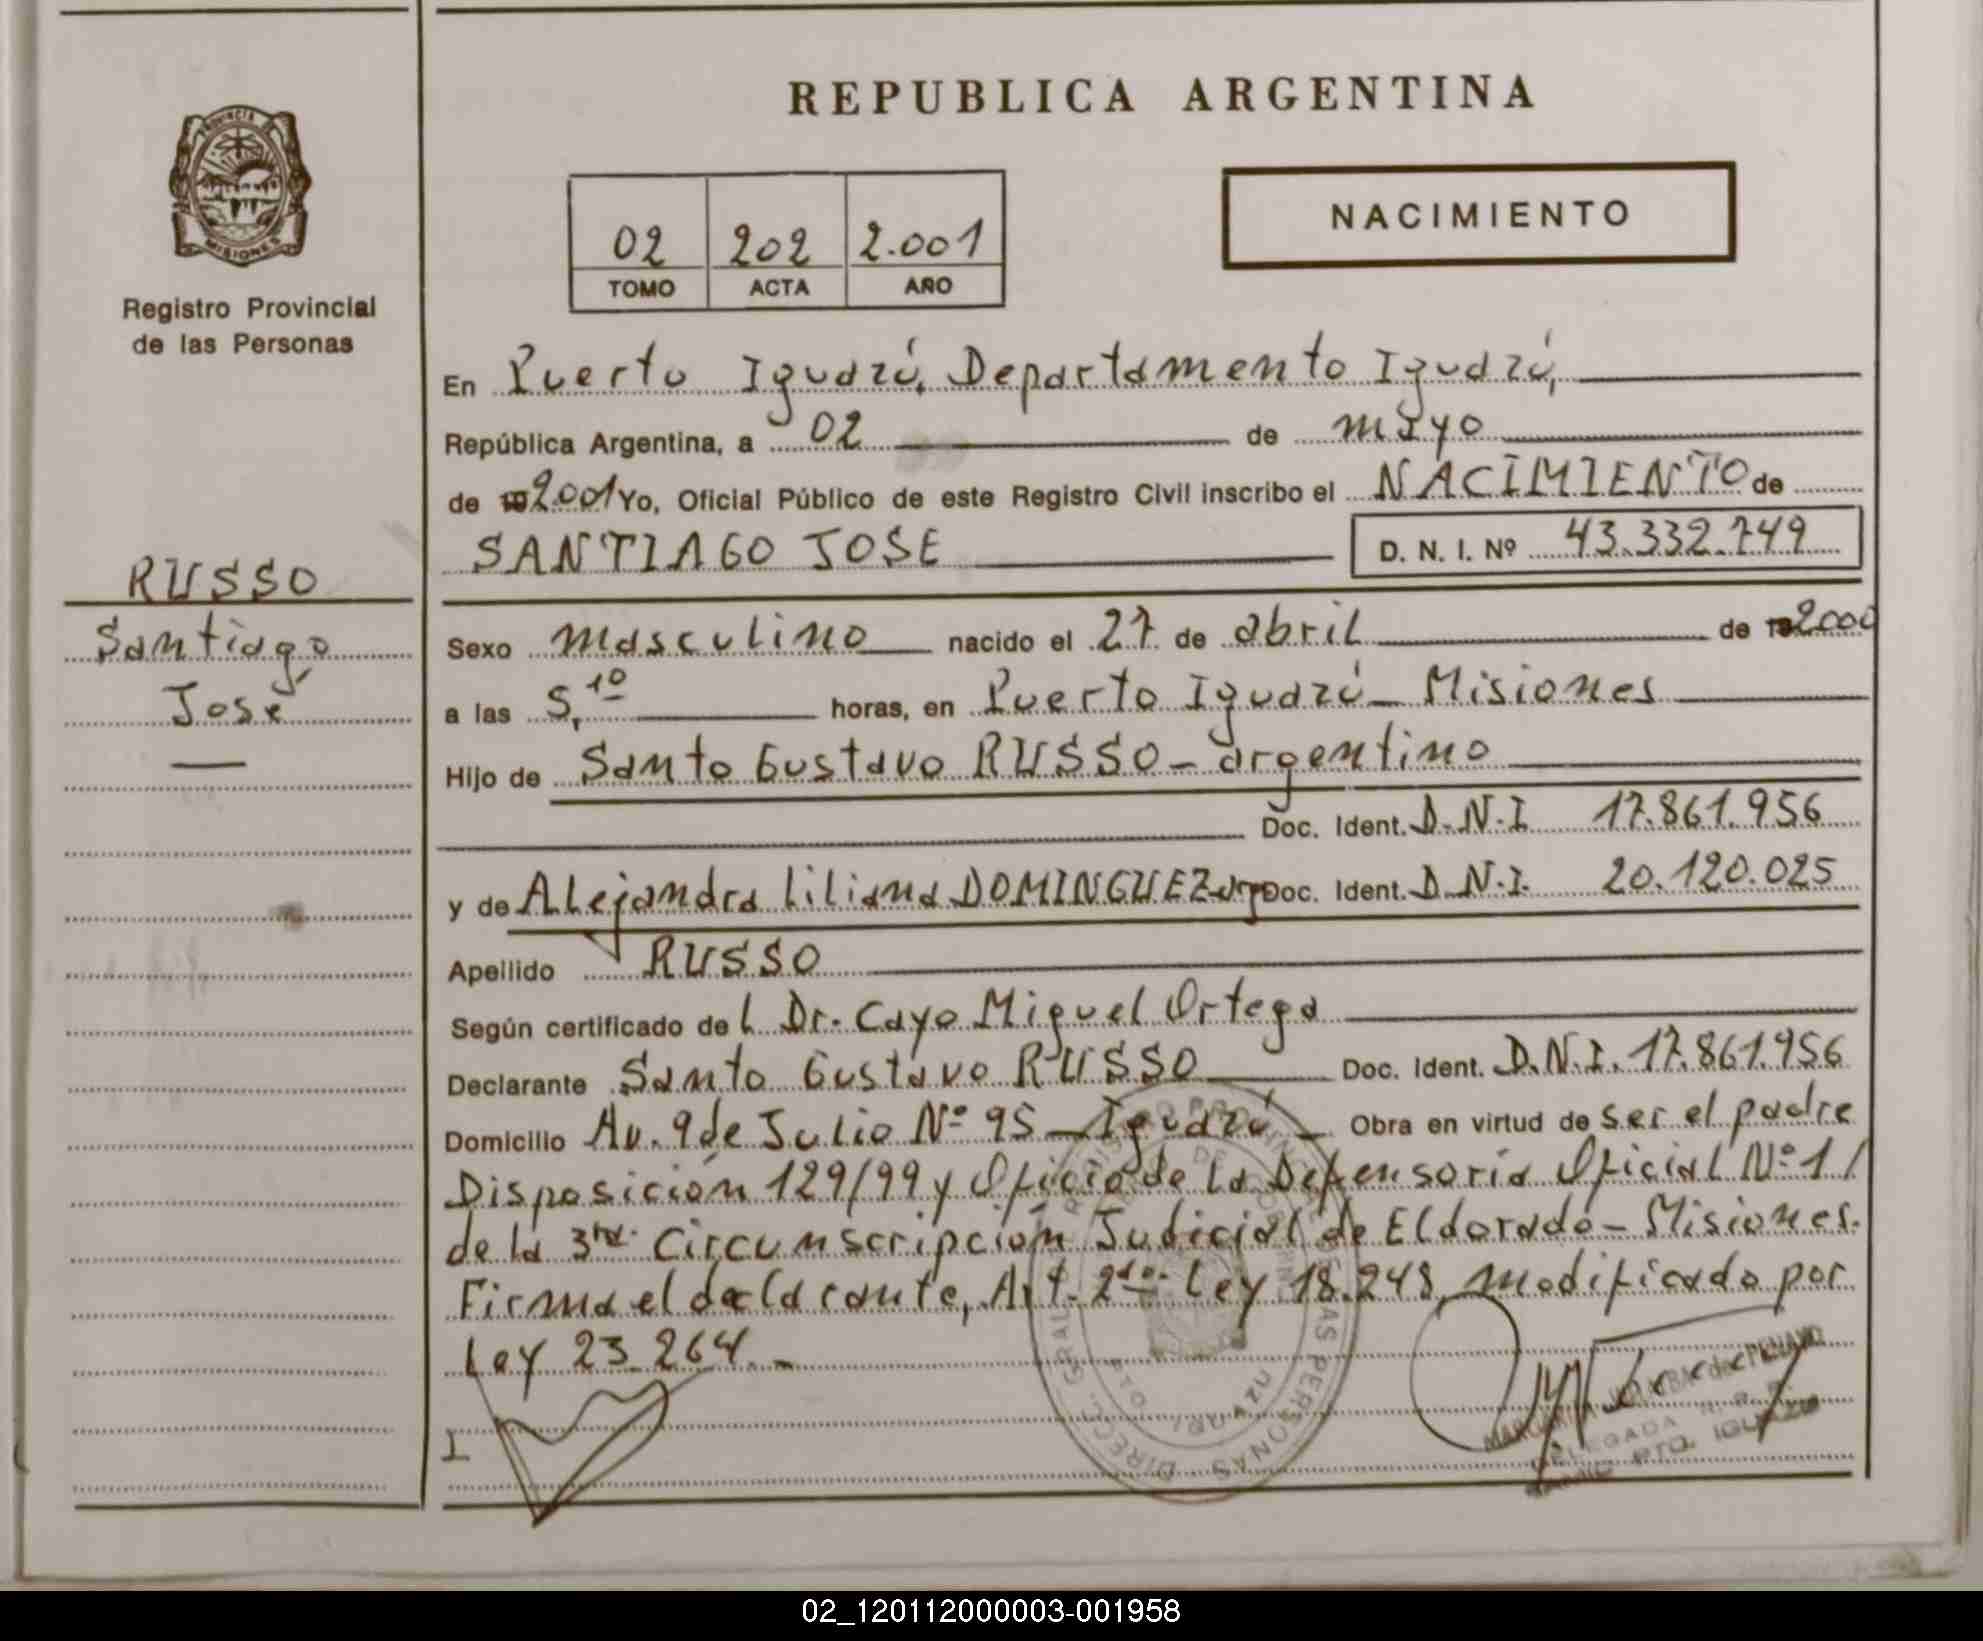 REPUBLICA ARGENTINA
PROVINCIA DE
MISIONES
Registro Provincial
de las Personas
NACIMIENTO
02 202 2.001
TOMO ACTA AÑO
En Puerto Iguazú, Departamento Iguazú,
República Argentina, a 02 de mayo
de 192001 Yo, Oficial Público de este Registro Civil inscribo el NACIMIENTO de
SANTIAGO JOSE D. N. I. Nº 43.332.749
RUSSO
Santiago
José
Sexo masculino nacido el 27 de abril de 192000
a las 5,10 horas, en Puerto Iguazú - Misiones
Hijo de Santo Gustavo RUSSO - argentino
Doc. Ident. D.N.I 17.861.956
y de Alejandra Liliana DOMINGUEZ - arg Doc. Ident. D.N.I. 20.120.025
Apellido RUSSO
Según certificado del Dr. Cayo Miguel Ortega
Declarante Santo Gustavo RUSSO Doc. Ident. D.N.I. 17.861.956
Domicilio Av. 9 de Julio Nº 95 - Iguazú - Obra en virtud de ser el padre
Disposición 129/99 y Oficio de la Defensoría Oficial Nº 1 /
de la 3ra. Circunscripción Judicial de Eldorado - Misiones.
Firma el declarante, Art. 2do. Ley 18.248, modificado por
Ley 23.264.-
DELEGADA
PTO. IGUAZU
02_120112000003-001958